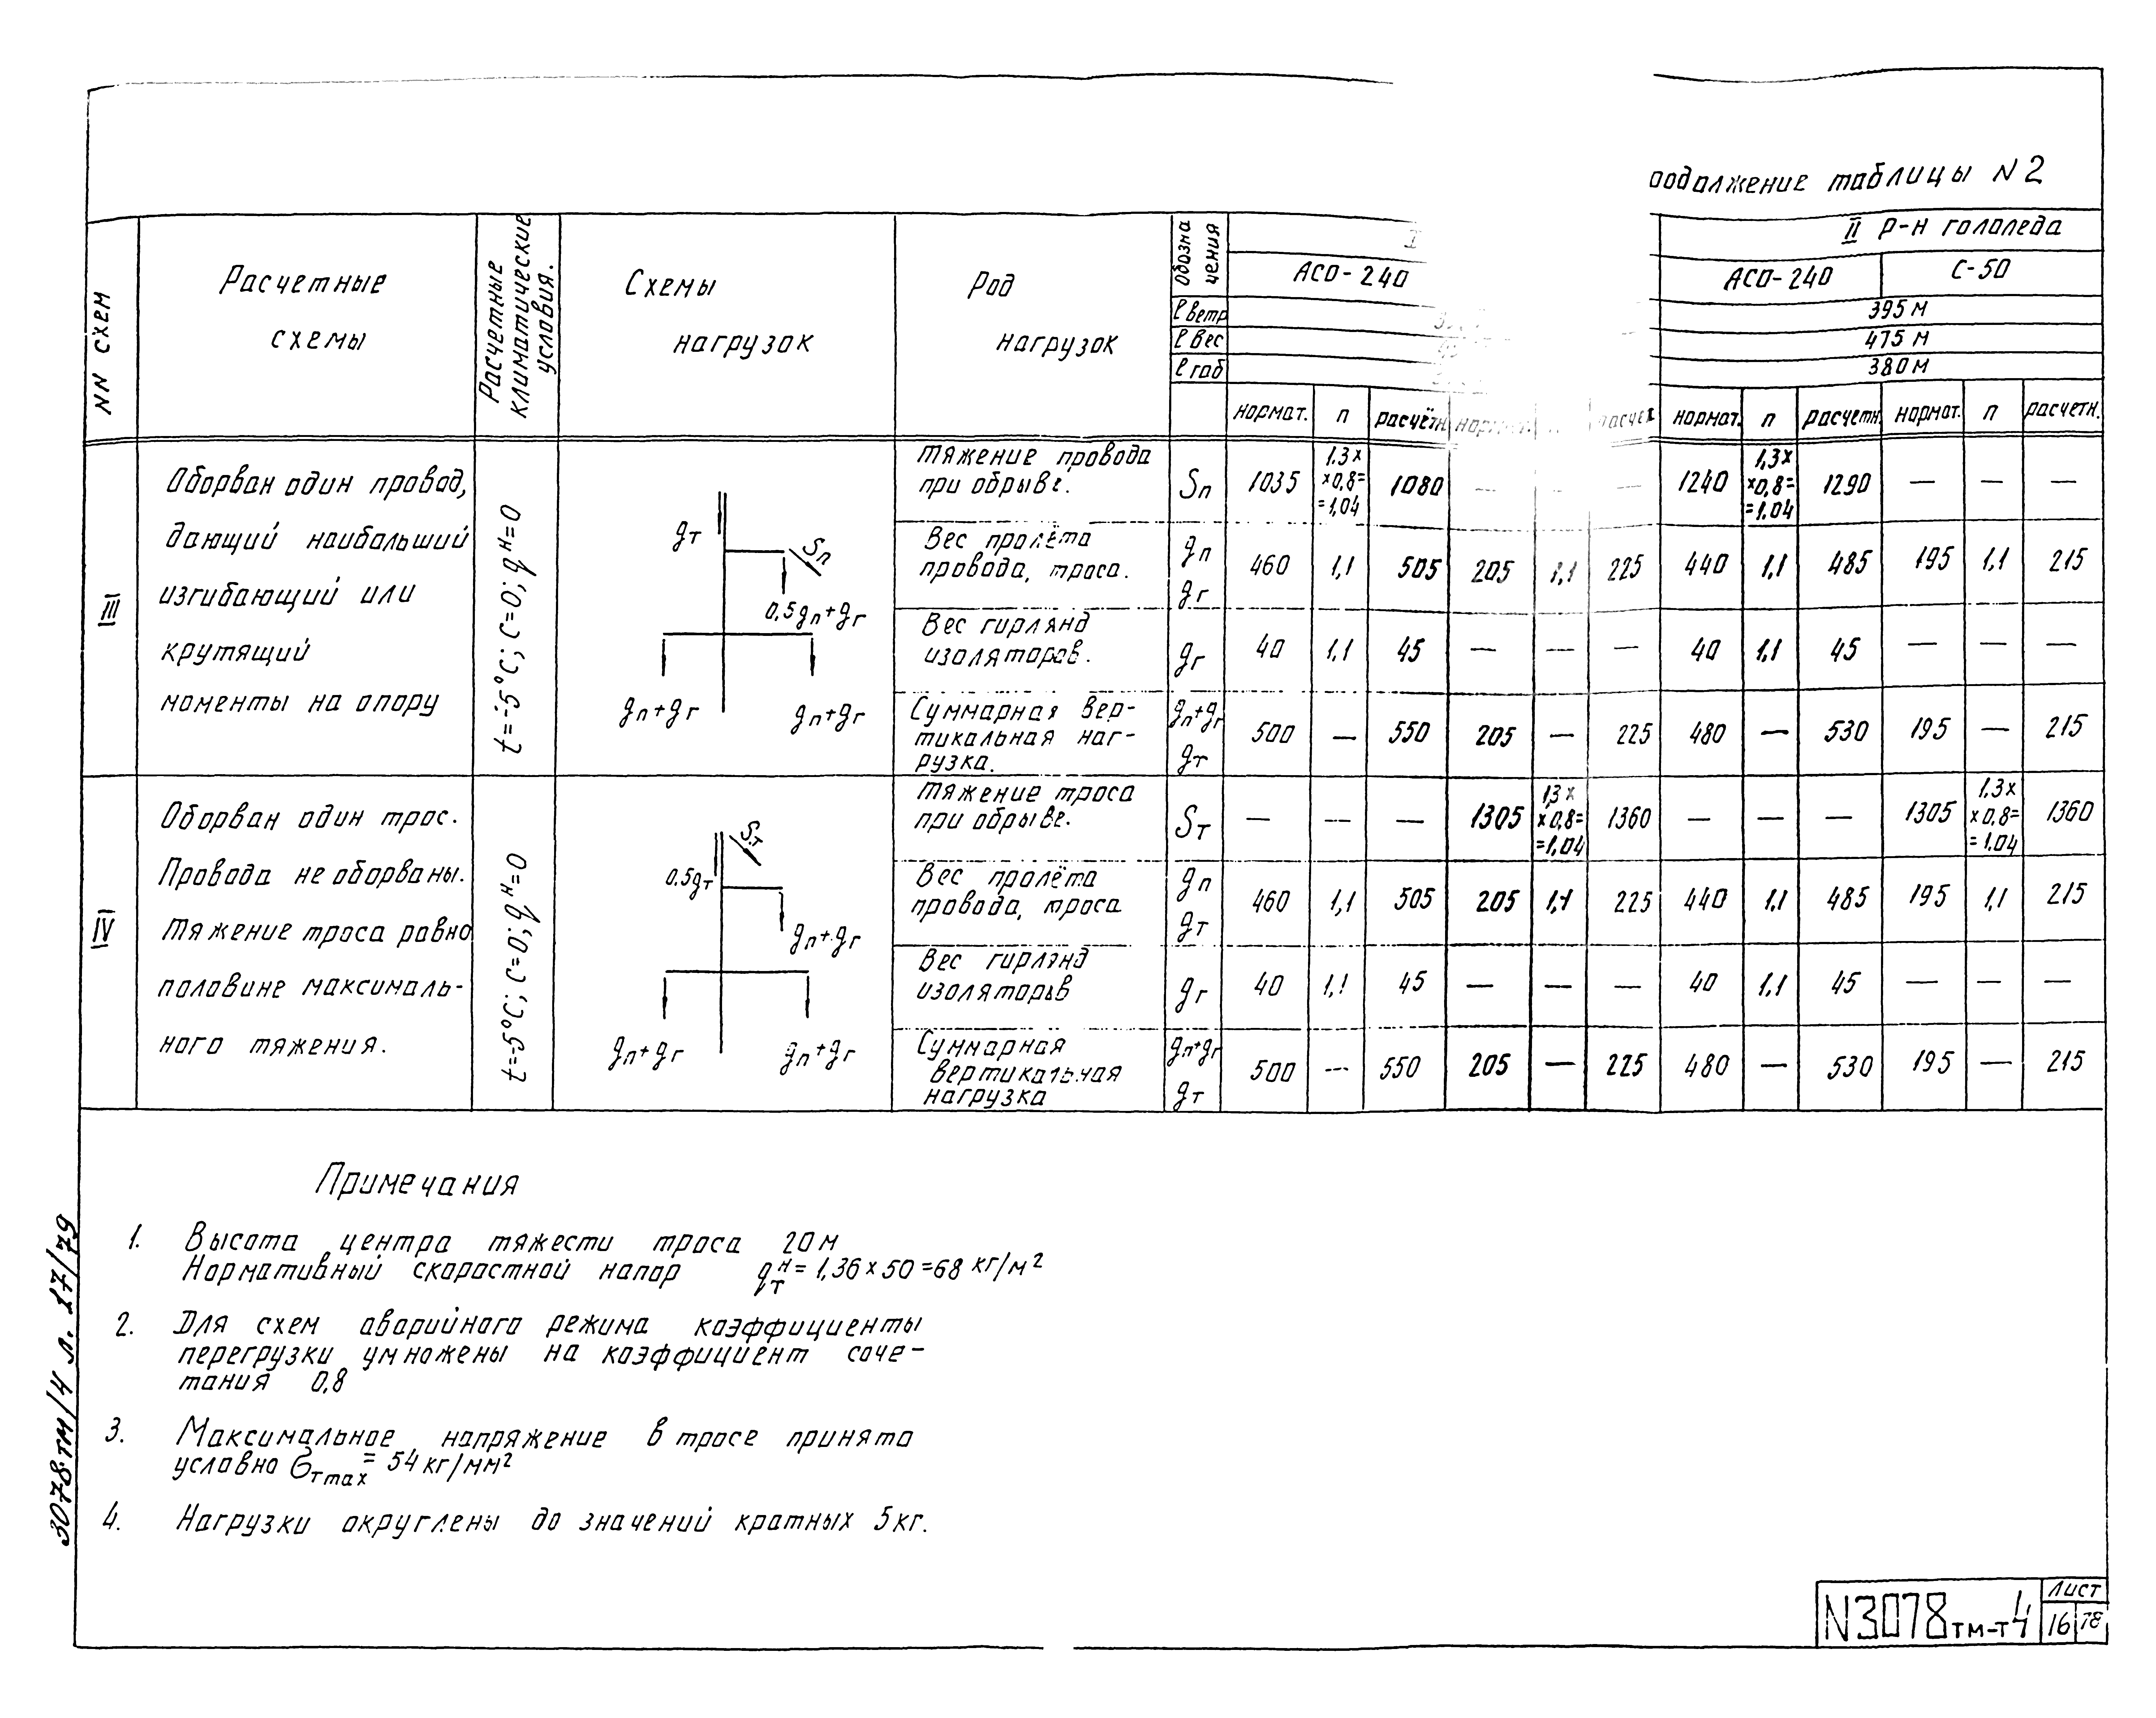 таблицы N2
NN схем
Расчетные
схемы
Расчетные
климатические
условия.
Схемы
нагрузок
Род
нагрузок
Обозна
чения
I
II р-н гололеда
АСО-240
АСО-240
С-50
ℓ ветр
395 м
ℓ вес
475 м
ℓ габ
380 м
нормат.
n
расчётн.
нормат.
n
расчетн.
нормат.
n
расчетн.
III
Оборван один провод,
дающий наибольший
изгибающий или
крутящий
моменты на опору
t=-5°C; c=0; qн=0
gт
Sп
0,5gп+gг
gп+gг
gп+gг
Тяжение провода
при обрыве.
Sп
1035
1.3×
×0,8=
=1,04
1080
—
—
—
1240
1,3×
×0,8=
=1.04
1290
—
—
—
Вес пролёта
провода, троса.
gп
gг
460
1,1
505
205
1,1
225
440
1,1
485
195
1,1
215
Вес гирлянд
изоляторов.
gг
40
1,1
45
—
—
—
40
1,1
45
—
—
—
Суммарная вер-
тикальная наг-
рузка.
gп+gг
gт
500
—
550
205
—
225
480
—
530
195
—
215
IV
Оборван один трос.
Провода не оборваны.
Тяжение троса равно
половине максималь-
ного тяжения.
t=-5°C; c=0; qн=0
Sт
0.5gт
gп+gг
gп+gг
gп+gг
Тяжение троса
при обрыве.
Sт
—
—
—
1305
1,3×
×0,8=
=1,04
1360
—
—
—
1305
1.3×
×0,8=
=1.04
1360
Вес пролёта
провода, троса
gп
gт
460
1,1
505
205
1,1
225
440
1.1
485
195
1,1
215
Вес гирлянд
изоляторов
gг
40
1,1
45
—
—
—
40
1,1
45
—
—
—
Суммарная
вертикальная
нагрузка
gп+gг
gт
500
—
550
205
—
225
480
—
530
195
—
215
Примечания
1. Высота центра тяжести троса 20 м
Нормативный скоростной напор qтн = 1,36 × 50 = 68 кг/м²
2. Для схем аварийного режима коэффициенты
перегрузки умножены на коэффициент соче-
тания 0,8
3. Максимальное напряжение в тросе принято
условно бт max = 54 кг/мм²
4. Нагрузки округлены до значений кратных 5кг.
3078тм/4 л. 17/79
N3078тм-т4
Лист
16
78